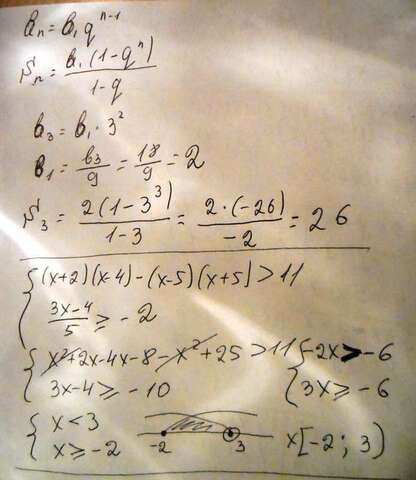 bₙ = b₁qⁿ⁻¹
Sₙ = b₁(1-qⁿ) / 1-q
b₃ = b₁·3²
b₁ = b₃/9 = 18/9 = 2
S₃ = 2(1-3³) / 1-3 = 2·(-26) / -2 = 26
{ (x+2)(x-4)-(x-5)(x+5)>11
3x-4 / 5 ≥ -2
{ x²+2x-4x-8-x²+25>11 { -2x>-6
3x-4≥-10 3x≥-6
{ x<3
x≥-2 -2 3 x[-2; 3)